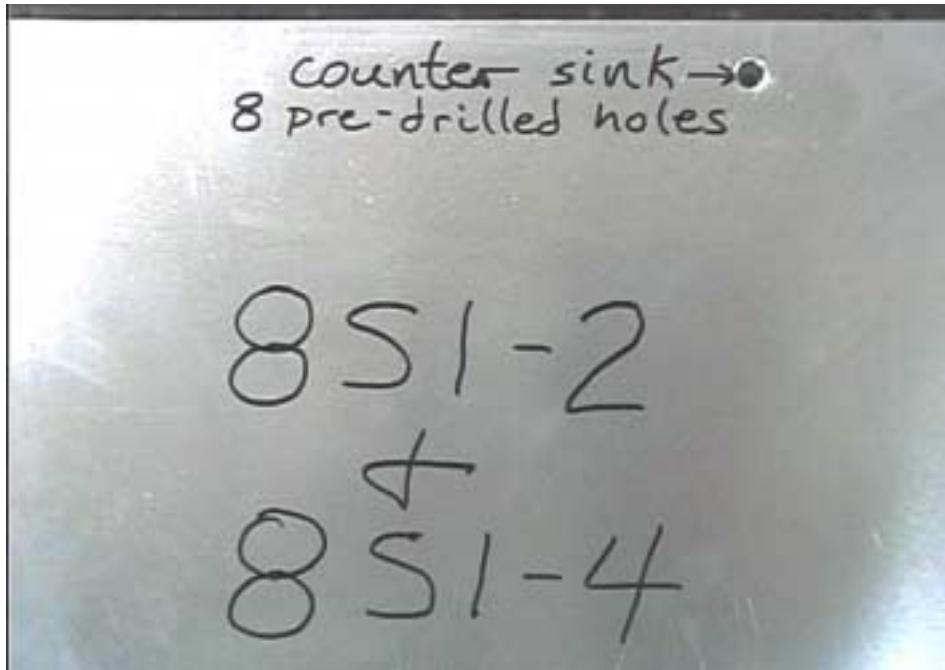 counter sink →
8 pre-drilled holes
8S1-2
+
8S1-4